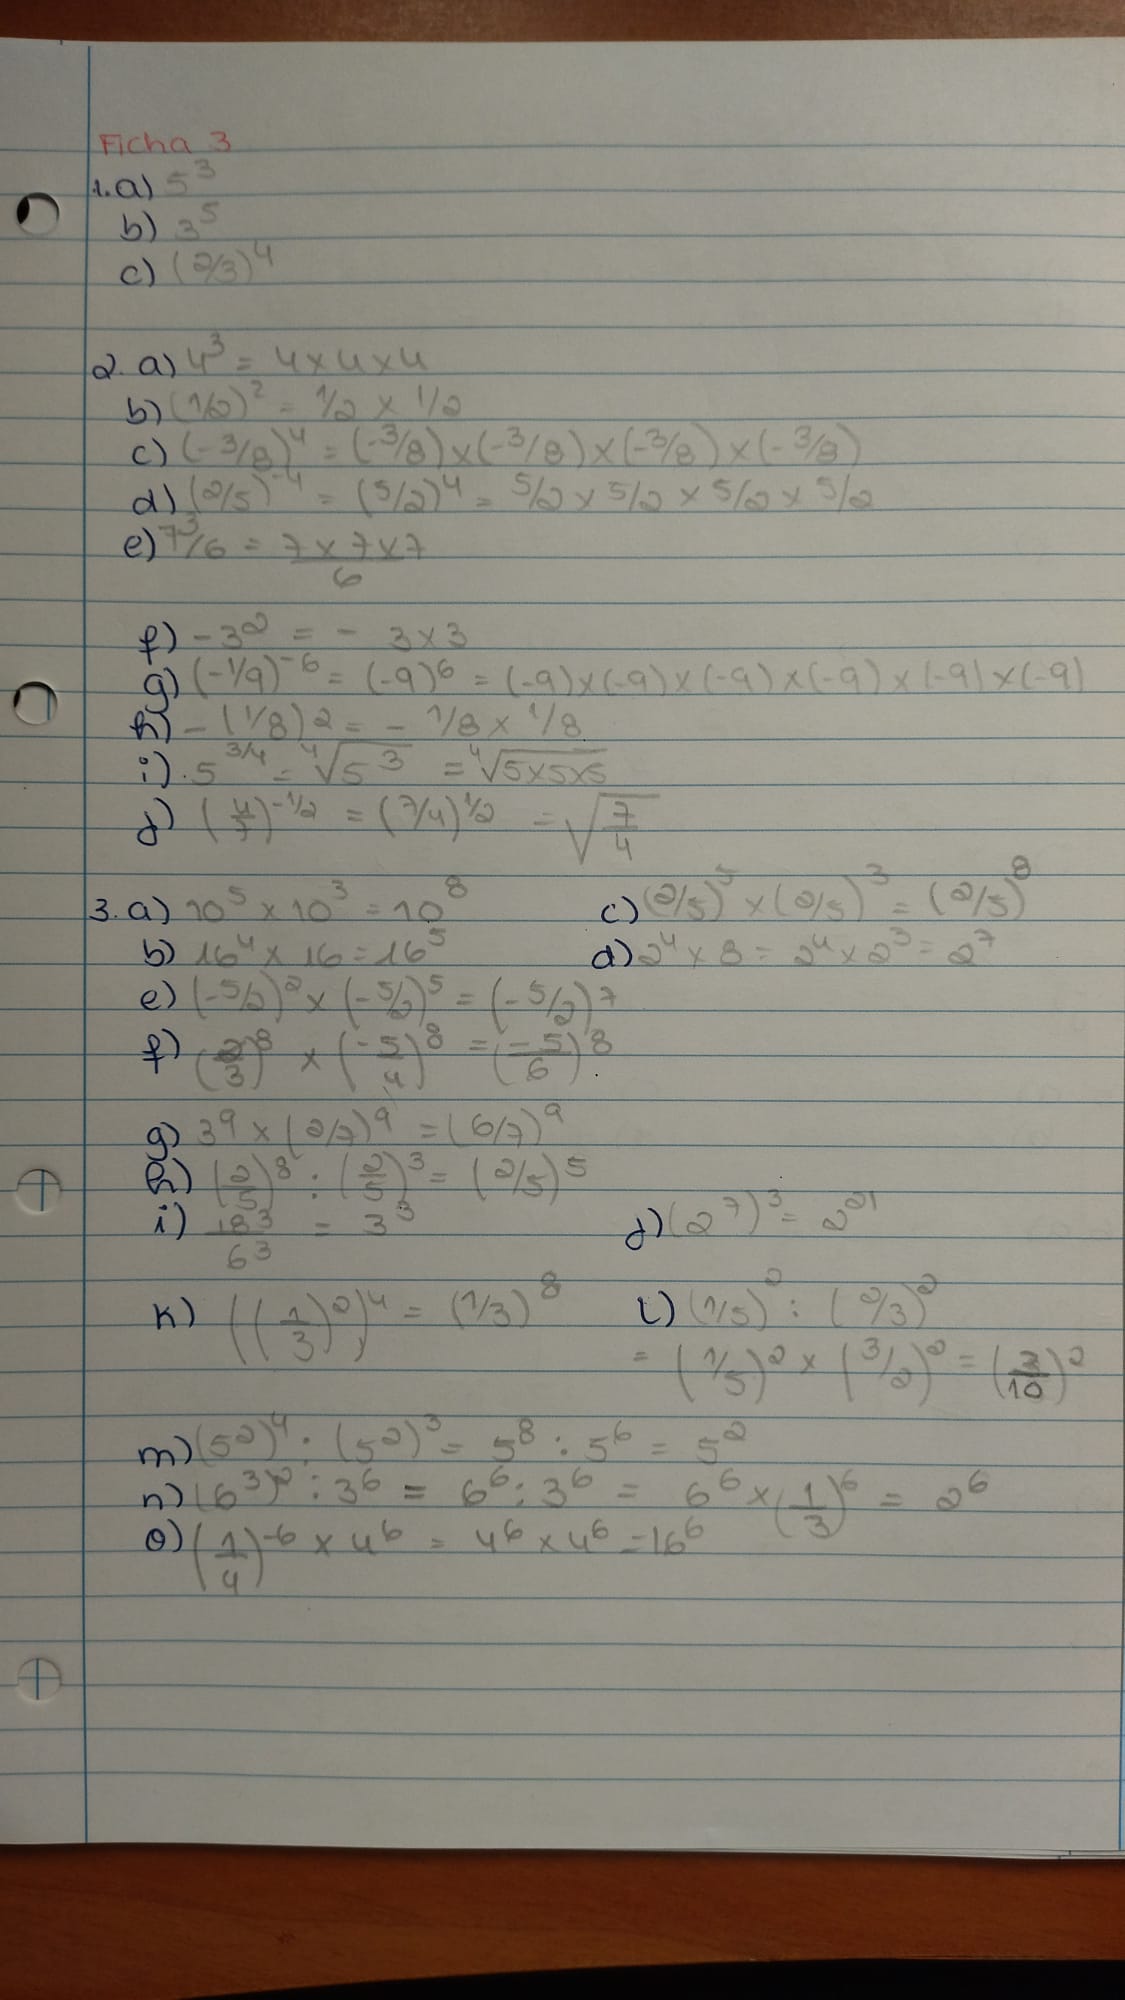 Ficha 3
1. a) 5³
b) 3⁵
c) (2/3)⁴
2. a) 4³ = 4 × 4 × 4
b) (1/2)² = 1/2 × 1/2
c) (-3/8)⁴ = (-3/8) × (-3/8) × (-3/8) × (-3/8)
d) (2/5)⁻⁴ = (5/2)⁴ = 5/2 × 5/2 × 5/2 × 5/2
e) 7³/6 = (7 × 7 × 7)/6
f) -3² = - 3 × 3
g) (-1/9)⁻⁶ = (-9)⁶ = (-9) × (-9) × (-9) × (-9) × (-9) × (-9)
h) - (1/8)2 = - 1/8 × 1/8
i) 5^(3/4) = ⁴√(5³) = ⁴√(5×5×5)
j) (4/7)^(-1/2) = (7/4)^(1/2) = √(7/4)
3. a) 10⁵ × 10³ = 10⁸ c) (2/5)⁵ × (2/5)³ = (2/5)⁸
b) 16⁴ × 16 = 16⁵ d) 2⁴ × 8 = 2⁴ × 2³ = 2⁷
e) (-5/2)² × (-5/2)⁵ = (-5/2)⁷
f) (2/3)⁸ × (-5/4)⁸ = (-5/6)⁸
g) 3⁹ × (2/7)⁹ = (6/7)⁹
h) (2/5)⁸ : (2/5)³ = (2/5)⁵
i) 18³/6³ = 3³ j) (2⁷)³ = 2²¹
k) ((1/3)²)⁴ = (1/3)⁸ l) (1/5)² : (2/3)²
= (1/5)² × (3/2)² = (3/10)²
m) (5²)⁴ : (5²)³ = 5⁸ : 5⁶ = 5²
n) (6³)² : 3⁶ = 6⁶ : 3⁶ = 6⁶ × (1/3)⁶ = 2⁶
o) (1/4)⁻⁶ × 4⁶ = 4⁶ × 4⁶ = 16⁶